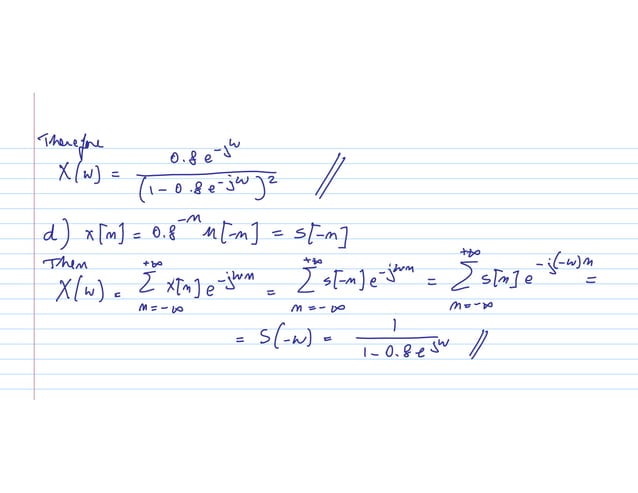 Therefore
X(ω) = 0.8 e^{-jω} / (1 - 0.8 e^{-jω})^2 //
d) x[n] = 0.8^{-n} u[-n] = s[-n]
Then
X(ω) = ∑_{n=-∞}^{+∞} x[n] e^{-jωn} = ∑_{n=-∞}^{+∞} s[-n] e^{-jωn} = ∑_{n=-∞}^{+∞} s[n] e^{-j(-ω)n} =
= S(-ω) = 1 / (1 - 0.8 e^{jω}) //